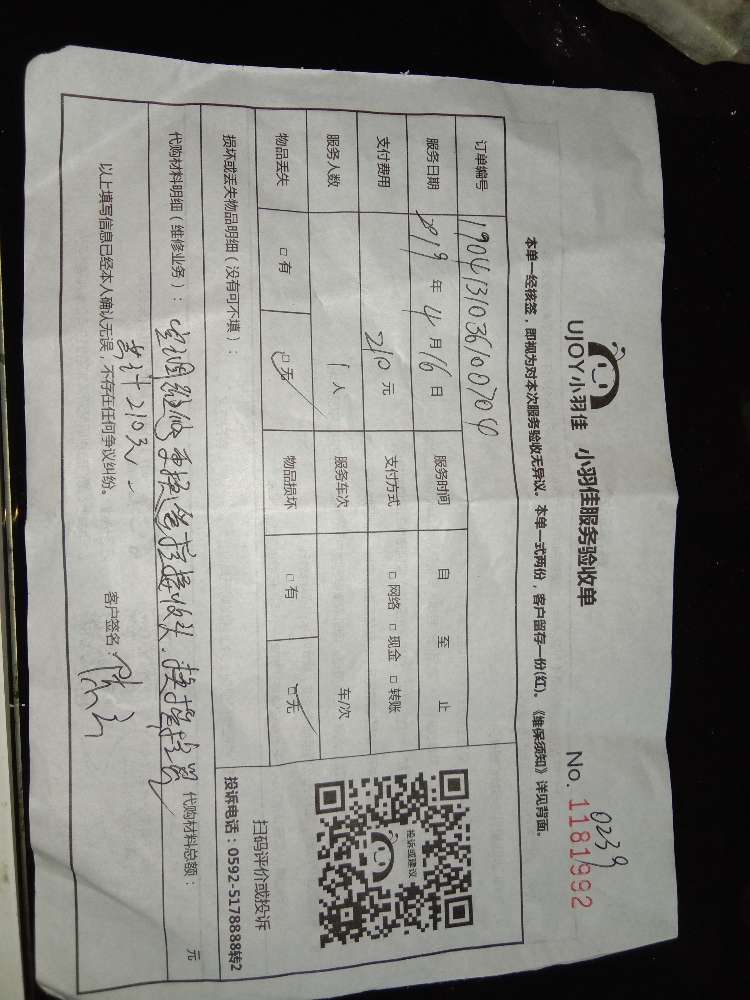 UJOY小羽佳 小羽佳服务验收单
No. 1181992
0239
本单一经核签，即视为对本次服务验收无异议。本单一式两份，客户留存一份(红)。《维保须知》详见背面。
订单编号 1904131036100704
服务日期 2019年4月16日 服务时间 自 至 止
支付费用 210元 支付方式 □网络 □现金 □转账
服务人数 1人 服务车次 车/次
物品丢失 □有 □无 物品损坏 □有 □无
损坏或丢失物品明细（没有可不填）：
代购材料明细（维修业务）： 代购材料总额： 元
以上填写信息已经本人确认无误，不存在任何争议纠纷。
客户签名：
投诉或建议
扫码评价或投诉
投诉电话：0592-5178888转2